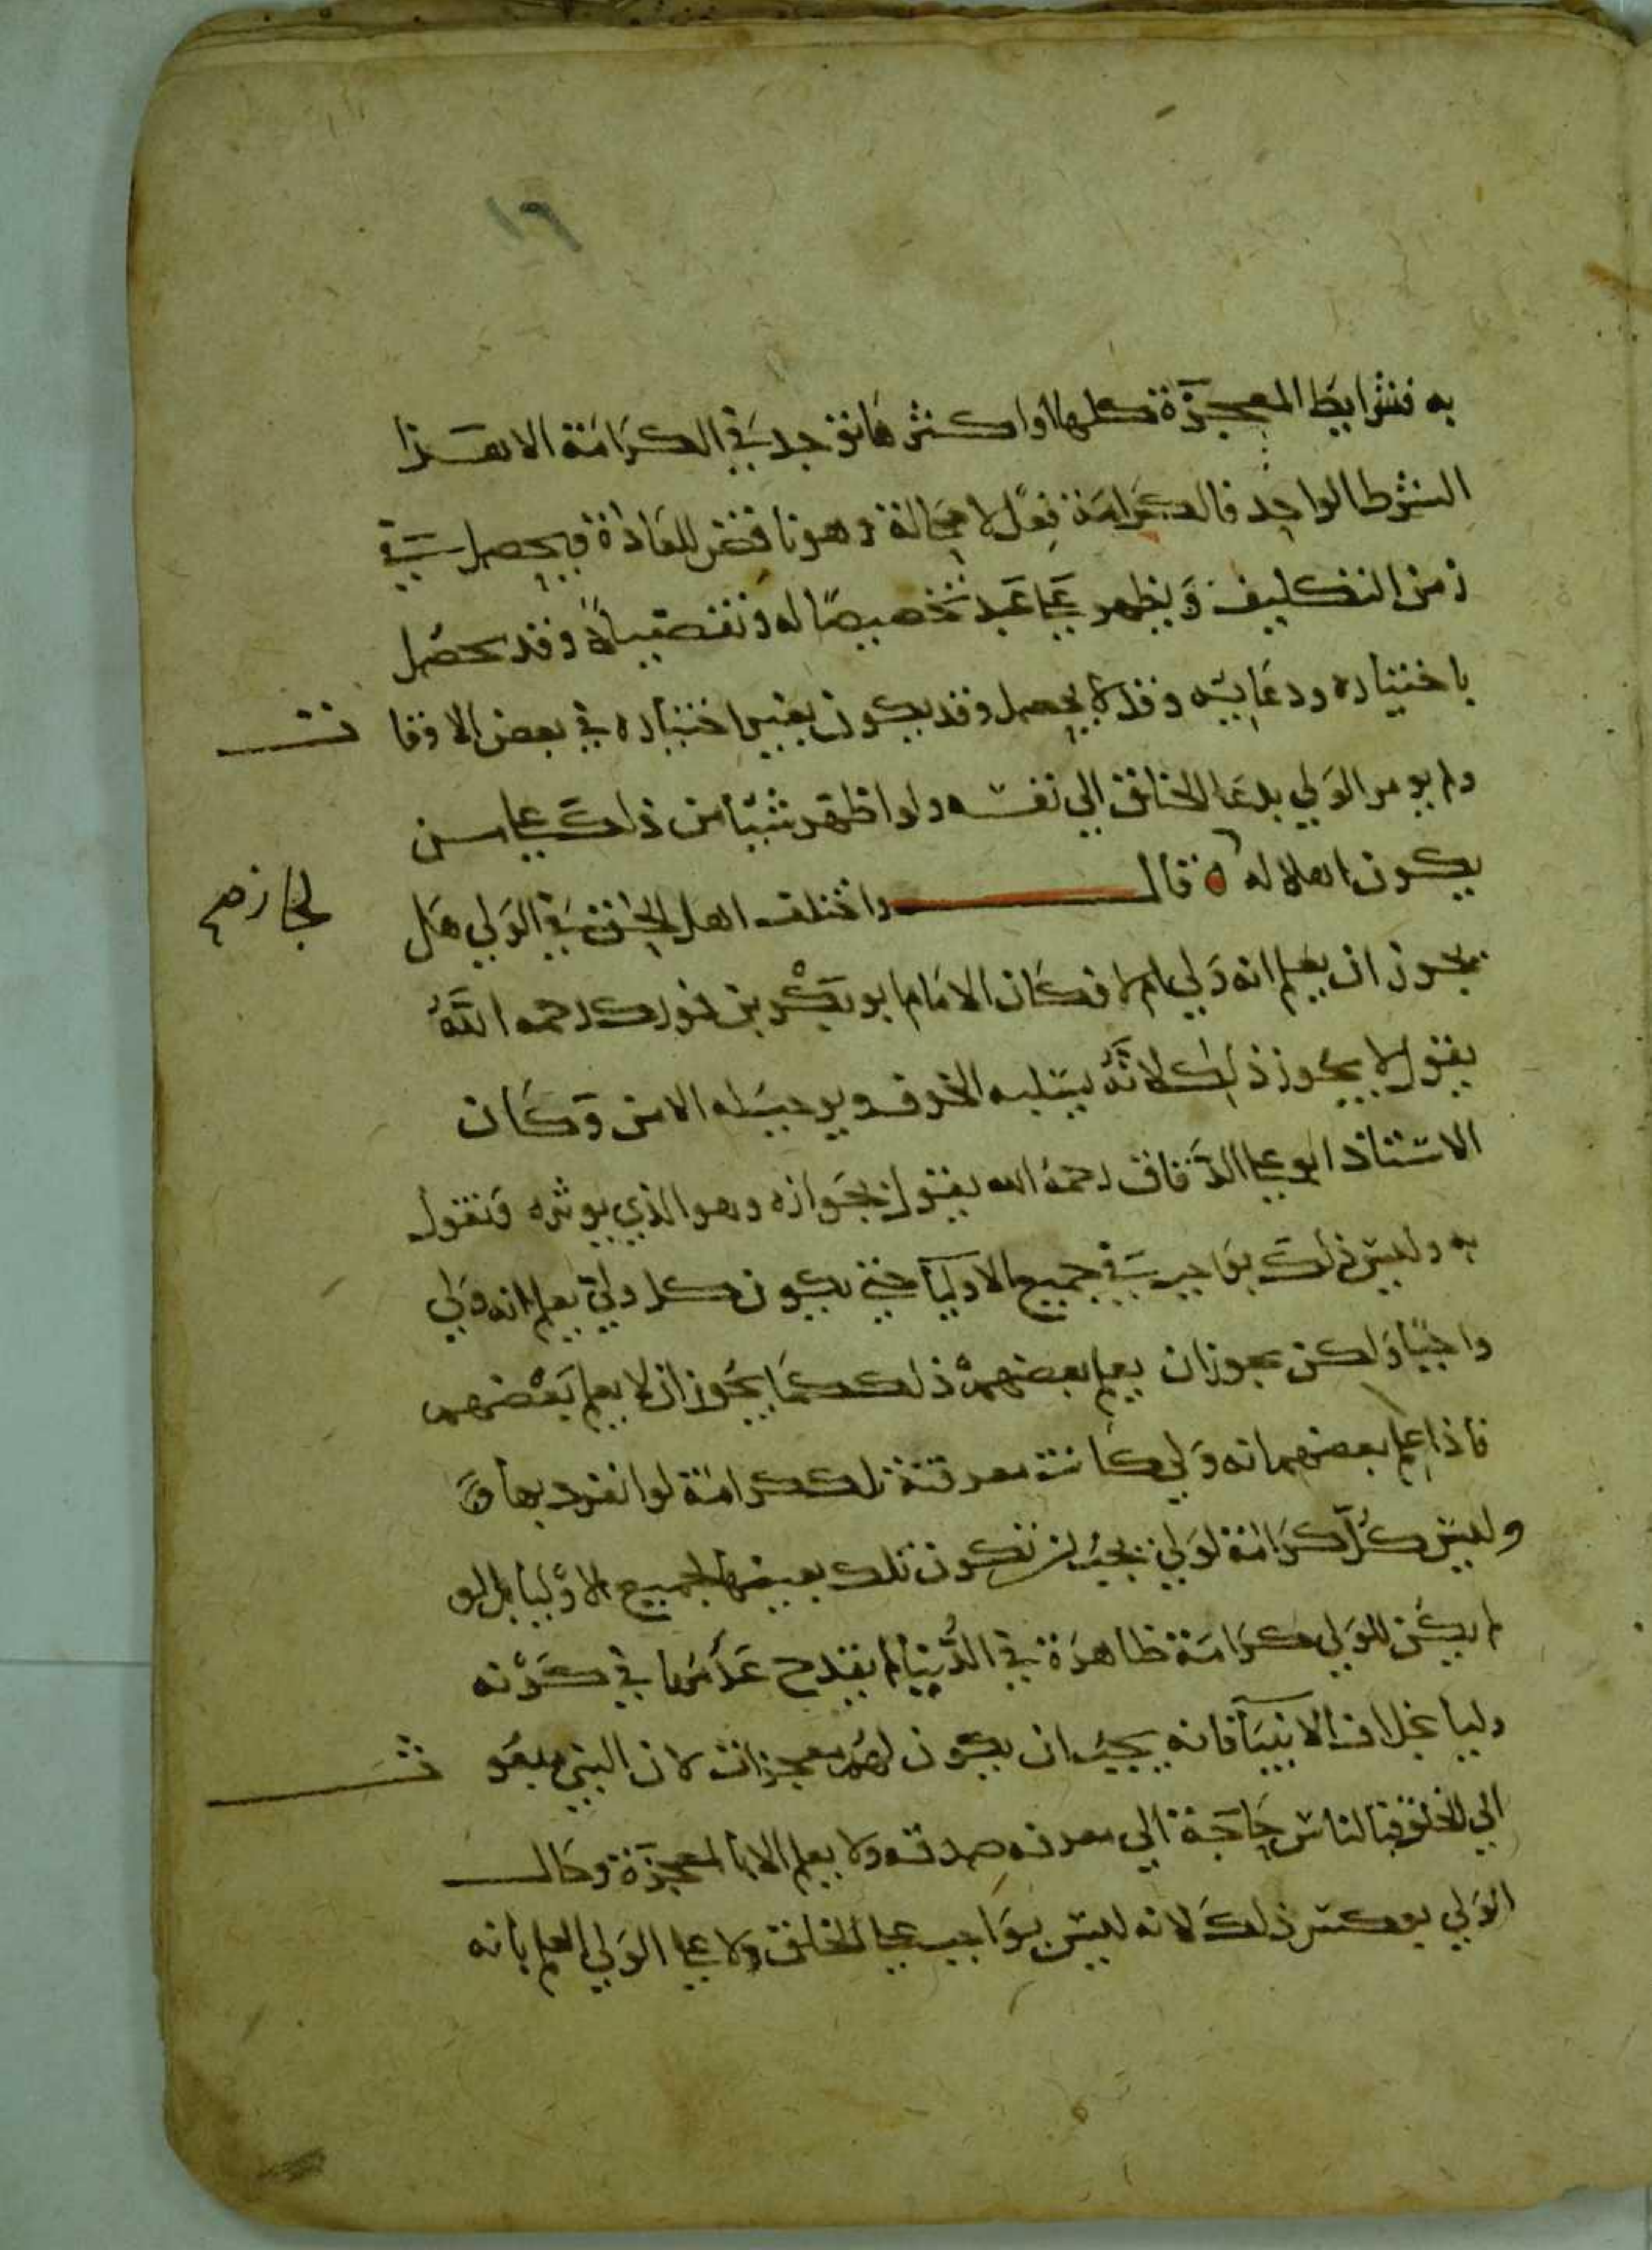 ١٦
به فشرايط المعجزة كلها او اكثرها توجد في الكرامة الا هذا
الشرط الواحد فالكرامة فعل لا محالة وهو ناقض للعادة فيحصل في
زمن التكليف ويظهر على عبد تخصيصا له وتفضيلا وقد يحصل
باختياره ودعايه وقد لا يحصل وقد يكون بغير اختياره في بعض الاوقا ت
ولم يومر الولي بدعا الخلق الي نفسه ولو اظهر شيا من ذلك على من
يكون اهلا له ه قال واختلف اهل الحق في الولي هل
لجاز صح
يجوز ان يعلم انه ولي ام لا فكان الامام ابو بكر بن فورك رحمه الله
يقول لا يجوز ذلك لانه يسلبه الخوف ويوجب له الامن وكان
الاستاذ ابو على الدقاق رحمه الله يقول بجوازه وهو الذي يوثره ونقول
به وليس ذلك بواجب في جميع الاوليا حتى يكون كل ولي يعلم انه ولي
واجبا ولكن يجوز ان يعلم بعضهم ذلك كما يجوز ان لا يعلم بعضهم
فاذا علم بعضهم انه ولي كانت معرفته تلك كرامة له انفرد بها
وليس كل كرامة لولي يجب ان تكون تلك بعينها لجميع الاوليا بل لو
لم يكن للولي كرامة ظاهرة في الدنيا لم يقدح عدمها في كونه
وليا بخلاف الانبيا فانه يجب ان يكون لهم معجزات لان النبي مبعو ث
الي الخلق فبالناس حاجة الي معرفة صدقه ولا يعلم الا بالمعجزة وحال
الولي بعكس ذلك لانه ليس بواجب على الخلق ولا على الولي العلم بانه